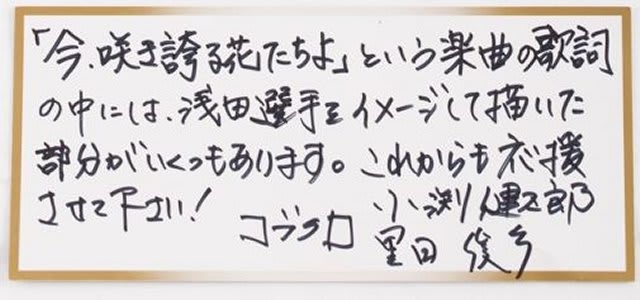 「今、咲き誇る花たちよ」という楽曲の歌詞
の中には、浅田選手をイメージして描いた
部分がいくつもあります。これからも応援
させて下さい!
小渕健太郎
コブクロ
黒田俊介